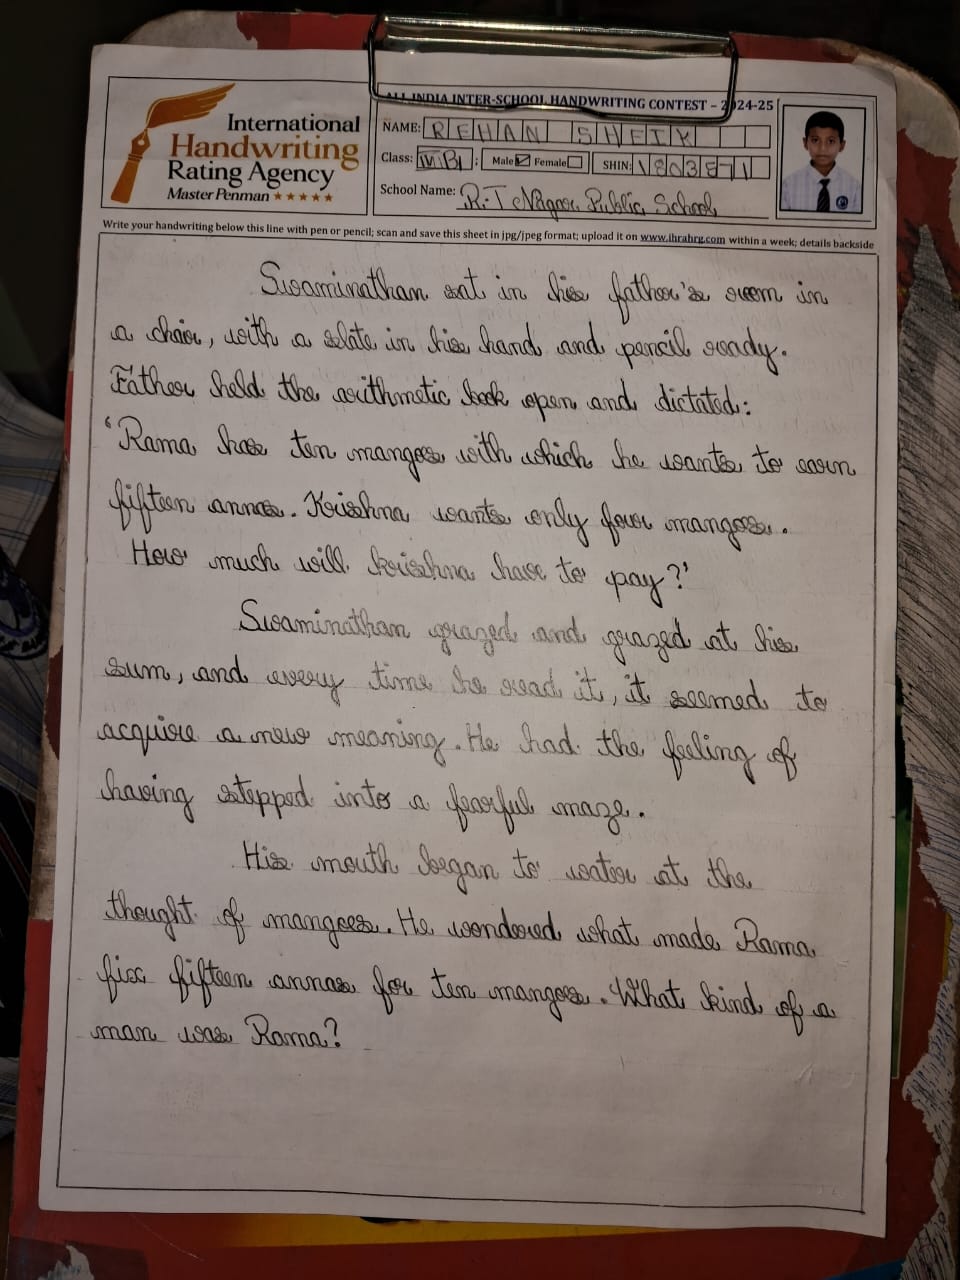 ALL INDIA INTER-SCHOOL HANDWRITING CONTEST – 2024-25
International
Handwriting
Rating Agency
Master Penman ★★★★★
NAME: REHAN SHEIK
Class: Male ☑ Female ☐ SHIN: 1803571
School Name: R.T Nagar Public School
Write your handwriting below this line with pen or pencil; scan and save this sheet in jpg/jpeg format; upload it on www.ihrahrg.com within a week; details backside
Swaminathan sat in his father's room in
a chair, with a slate in his hand and pencil ready.
Father held the arithmetic book open and dictated:
'Rama has ten mangoes with which he wants to earn
fifteen annas. Krishna wants only four mangoes.
How much will krishna have to pay?'
Swaminathan grazed and grazed at his
sum, and every time he read it, it seemed to
acquire a new meaning. He had the feeling of
having stepped into a fearful maze.
His mouth began to water at the
thought of mangoes. He wondered what made Rama
fix fifteen annas for ten mangoes. What kind of a
man was Rama?